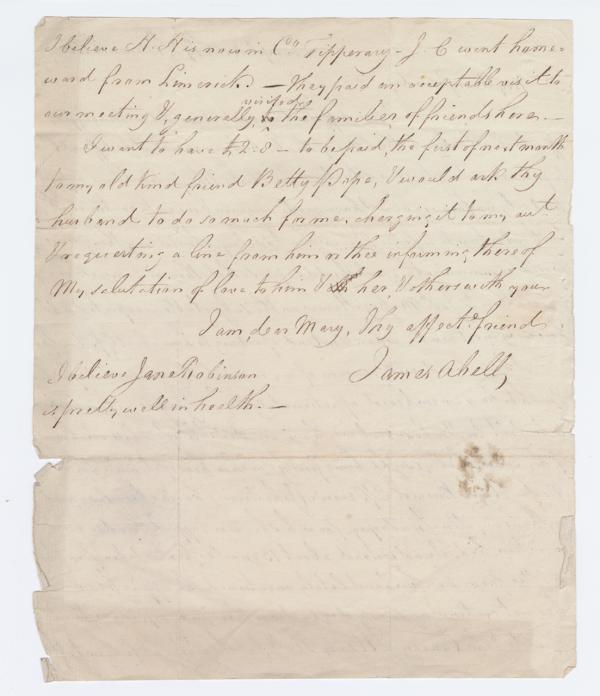 I believe A. H is now in Co. Tipperary - J. C went home=
ward from Limerick. - They paid an acceptable visit to
our meeting &, generally, visitations to the families of friends here. -
I want to have £2:8 - to be paid, the first of next month
to my old kind friend Betty Pope, & would ask thy
husband to do so much for me, charging it to my act
& requesting a line from him or thee informing thereof
My salutation of love to him & her, & others with you
I am, dear Mary, Thy affecte. friend
James Abell,
I believe Jane Robinson
is pretty well in health. -